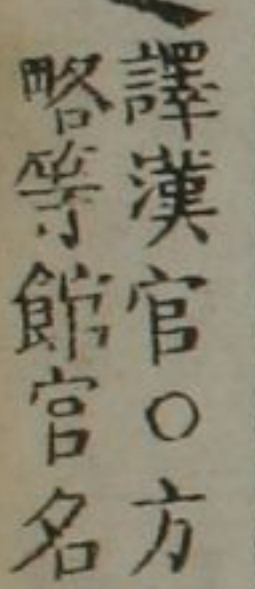 譯漢官○方
略等館官名